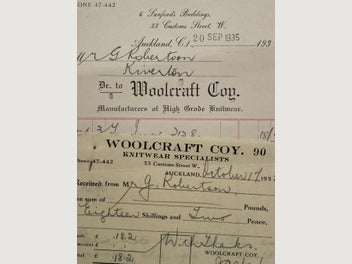 ONE 47-442
6 Sanfords Buildings,
23 Customs Street, W.
Auckland, C.1 20 SEP 1935 193
Mr G Robertson
Riverton
Dr. to Woolcraft Coy.
Manufacturers of High Grade Knitwear.
WOOLCRAFT COY. 90
KNITWEAR SPECIALISTS
47-442 33 Customs Street W.
AUCKLAND, October 17 193
Received from Mr G. Robertson
the sum of Pounds,
Eighteen Shillings and Two Pence,
£ : 18 2 With Thanks
WOOLCRAFT COY.
£ 18 2